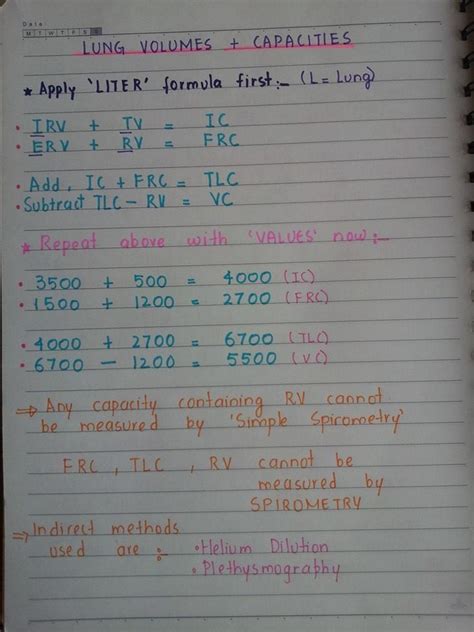 Date
M T W T F S S
LUNG VOLUMES + CAPACITIES
* Apply 'LITER' formula first:- (L= Lung)
• IRV + TV = IC
• ERV + RV = FRC
• Add, IC + FRC = TLC
• Subtract TLC - RV = VC
* Repeat above with 'VALUES' now:-
• 3500 + 500 = 4000 (IC)
• 1500 + 1200 = 2700 (FRC)
• 4000 + 2700 = 6700 (TLC)
• 6700 - 1200 = 5500 (VC)
⇒ Any capacity containing RV cannot
be measured by 'Simple Spirometry'
FRC, TLC, RV cannot be
measured by
SPIROMETRY
⇒ Indirect methods
used are :- • Helium Dilution
• Plethysmography